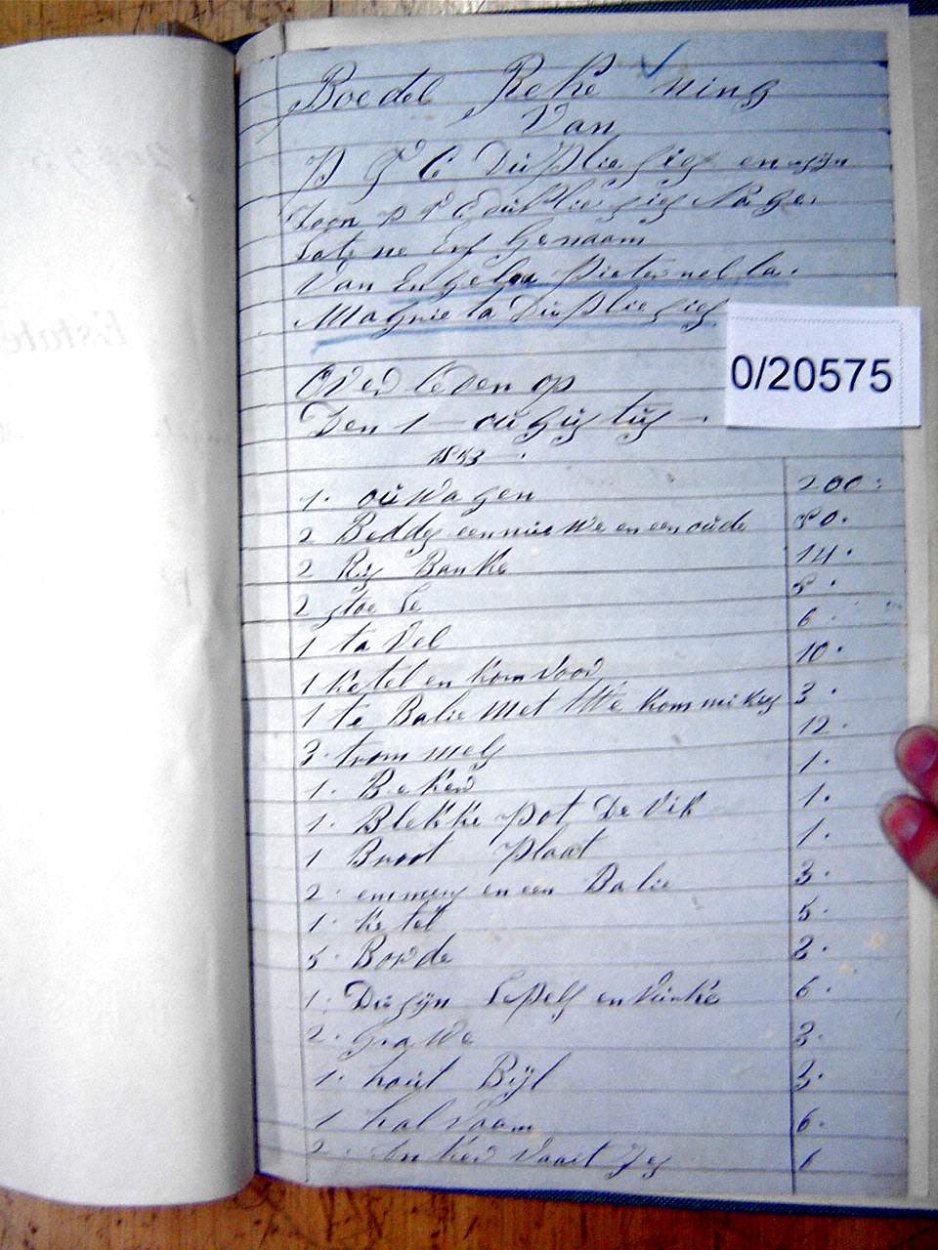 Boedel Reke ning
Van
P J C Du Pliesies en zijn
Zoon P J C du Pliesies Nage
Late ne Enf Genaam
Van Engela Pieternella.
Magrieta Du Pliesies
0/20575
Over leden op
Den 1 — augustus —.
1. ou Wagen 200:
2 Bedds een nuwe en een oude 80.
2 Rys Banke 14.
2 stoe le 5.
1 ta vel 6.
1 Ketel en Komvoor 10.
1 te Balie Met twe kommikes 3.
3. trommels 12.
1. Beker 1.
1. Blekke pot De Vik 1.
1 Broot plaat 1.
2. emmers en een Balie 3.
1. Ketel 5.
5. Borde 2.
1. Dusyn Lepels en Vurke 6.
2. Gra We 3.
1. hout Byl 3.
1. hal Vaam 6.
2. An ker Vaat Jes